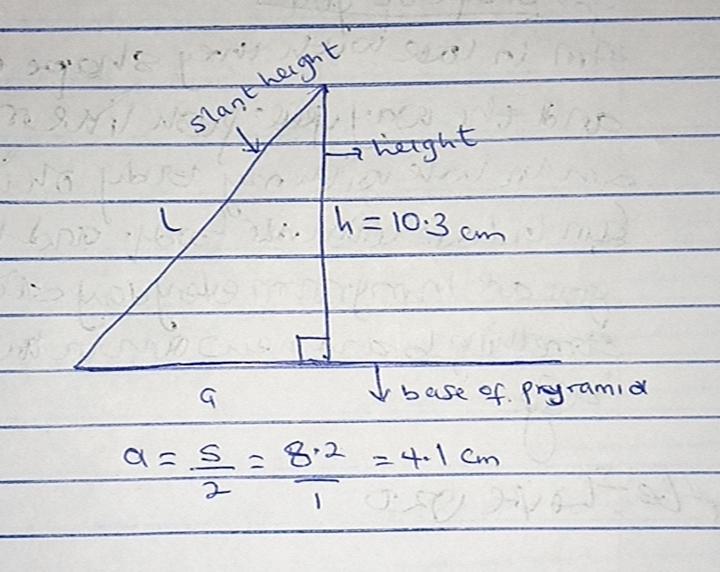 slant height
→ height
L
h = 10.3 cm
a
↓ base of pryramid
a = s/2 = 8.2/1 = 4.1 cm